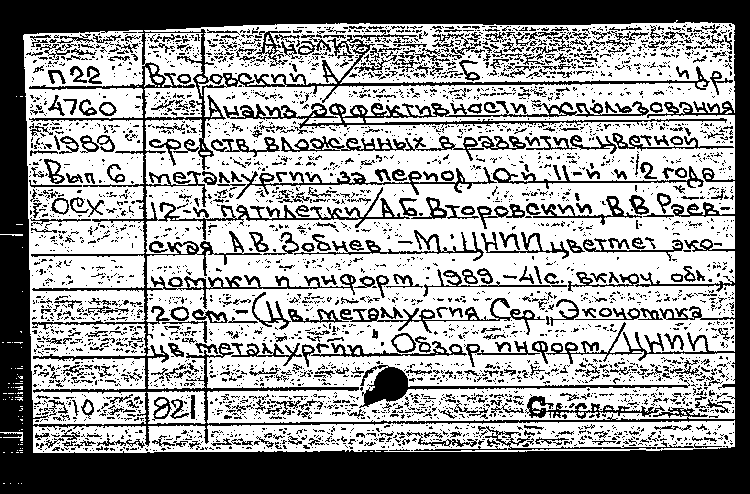 Анализ
п22 Второвский, А Б и др.
4760 Анализ эффективности использования
1989 средств, вложенных в развитие цветной
Вып. 6 металлургии за период 10-й, 11-й и 2 года
осх 12-й пятилетки / А.Б. Второвский, В.В. Раев-
ская, А.В. Зобнев. – М.: ЦНИИ цветмет эко-
номики и информ, 1989. – 41с., включ. обл.,
20см. – (Цв. металлургия. Сер. „Экономика
цв. металлургии": Обзор. информ / ЦНИИ
10 821 См. след